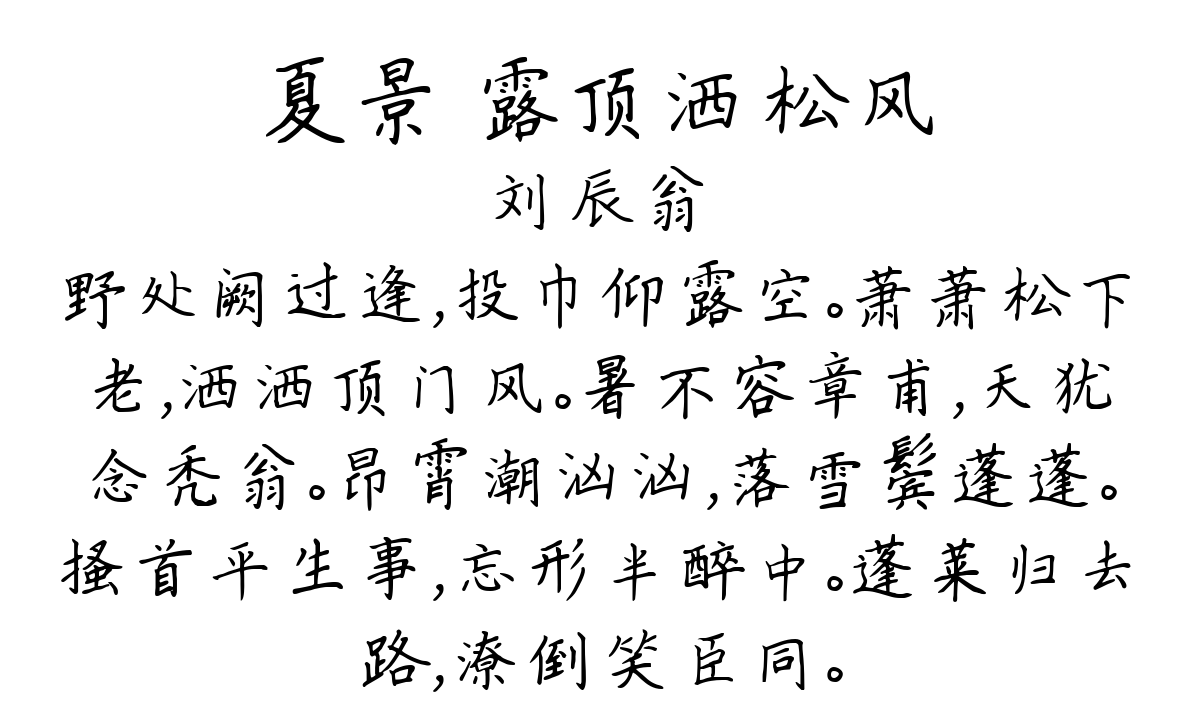 夏景 露顶洒松风
刘辰翁
野处阙过逢,投巾仰露空。萧萧松下
老,洒洒顶门风。暑不容章甫,天犹
念秃翁。昂霄潮汹汹,落雪鬓蓬蓬。
搔首平生事,忘形半醉中。蓬莱归去
路,潦倒笑臣同。